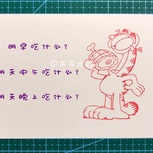 明早吃什么?
明天中午吃什么?
明天晚上吃什么?